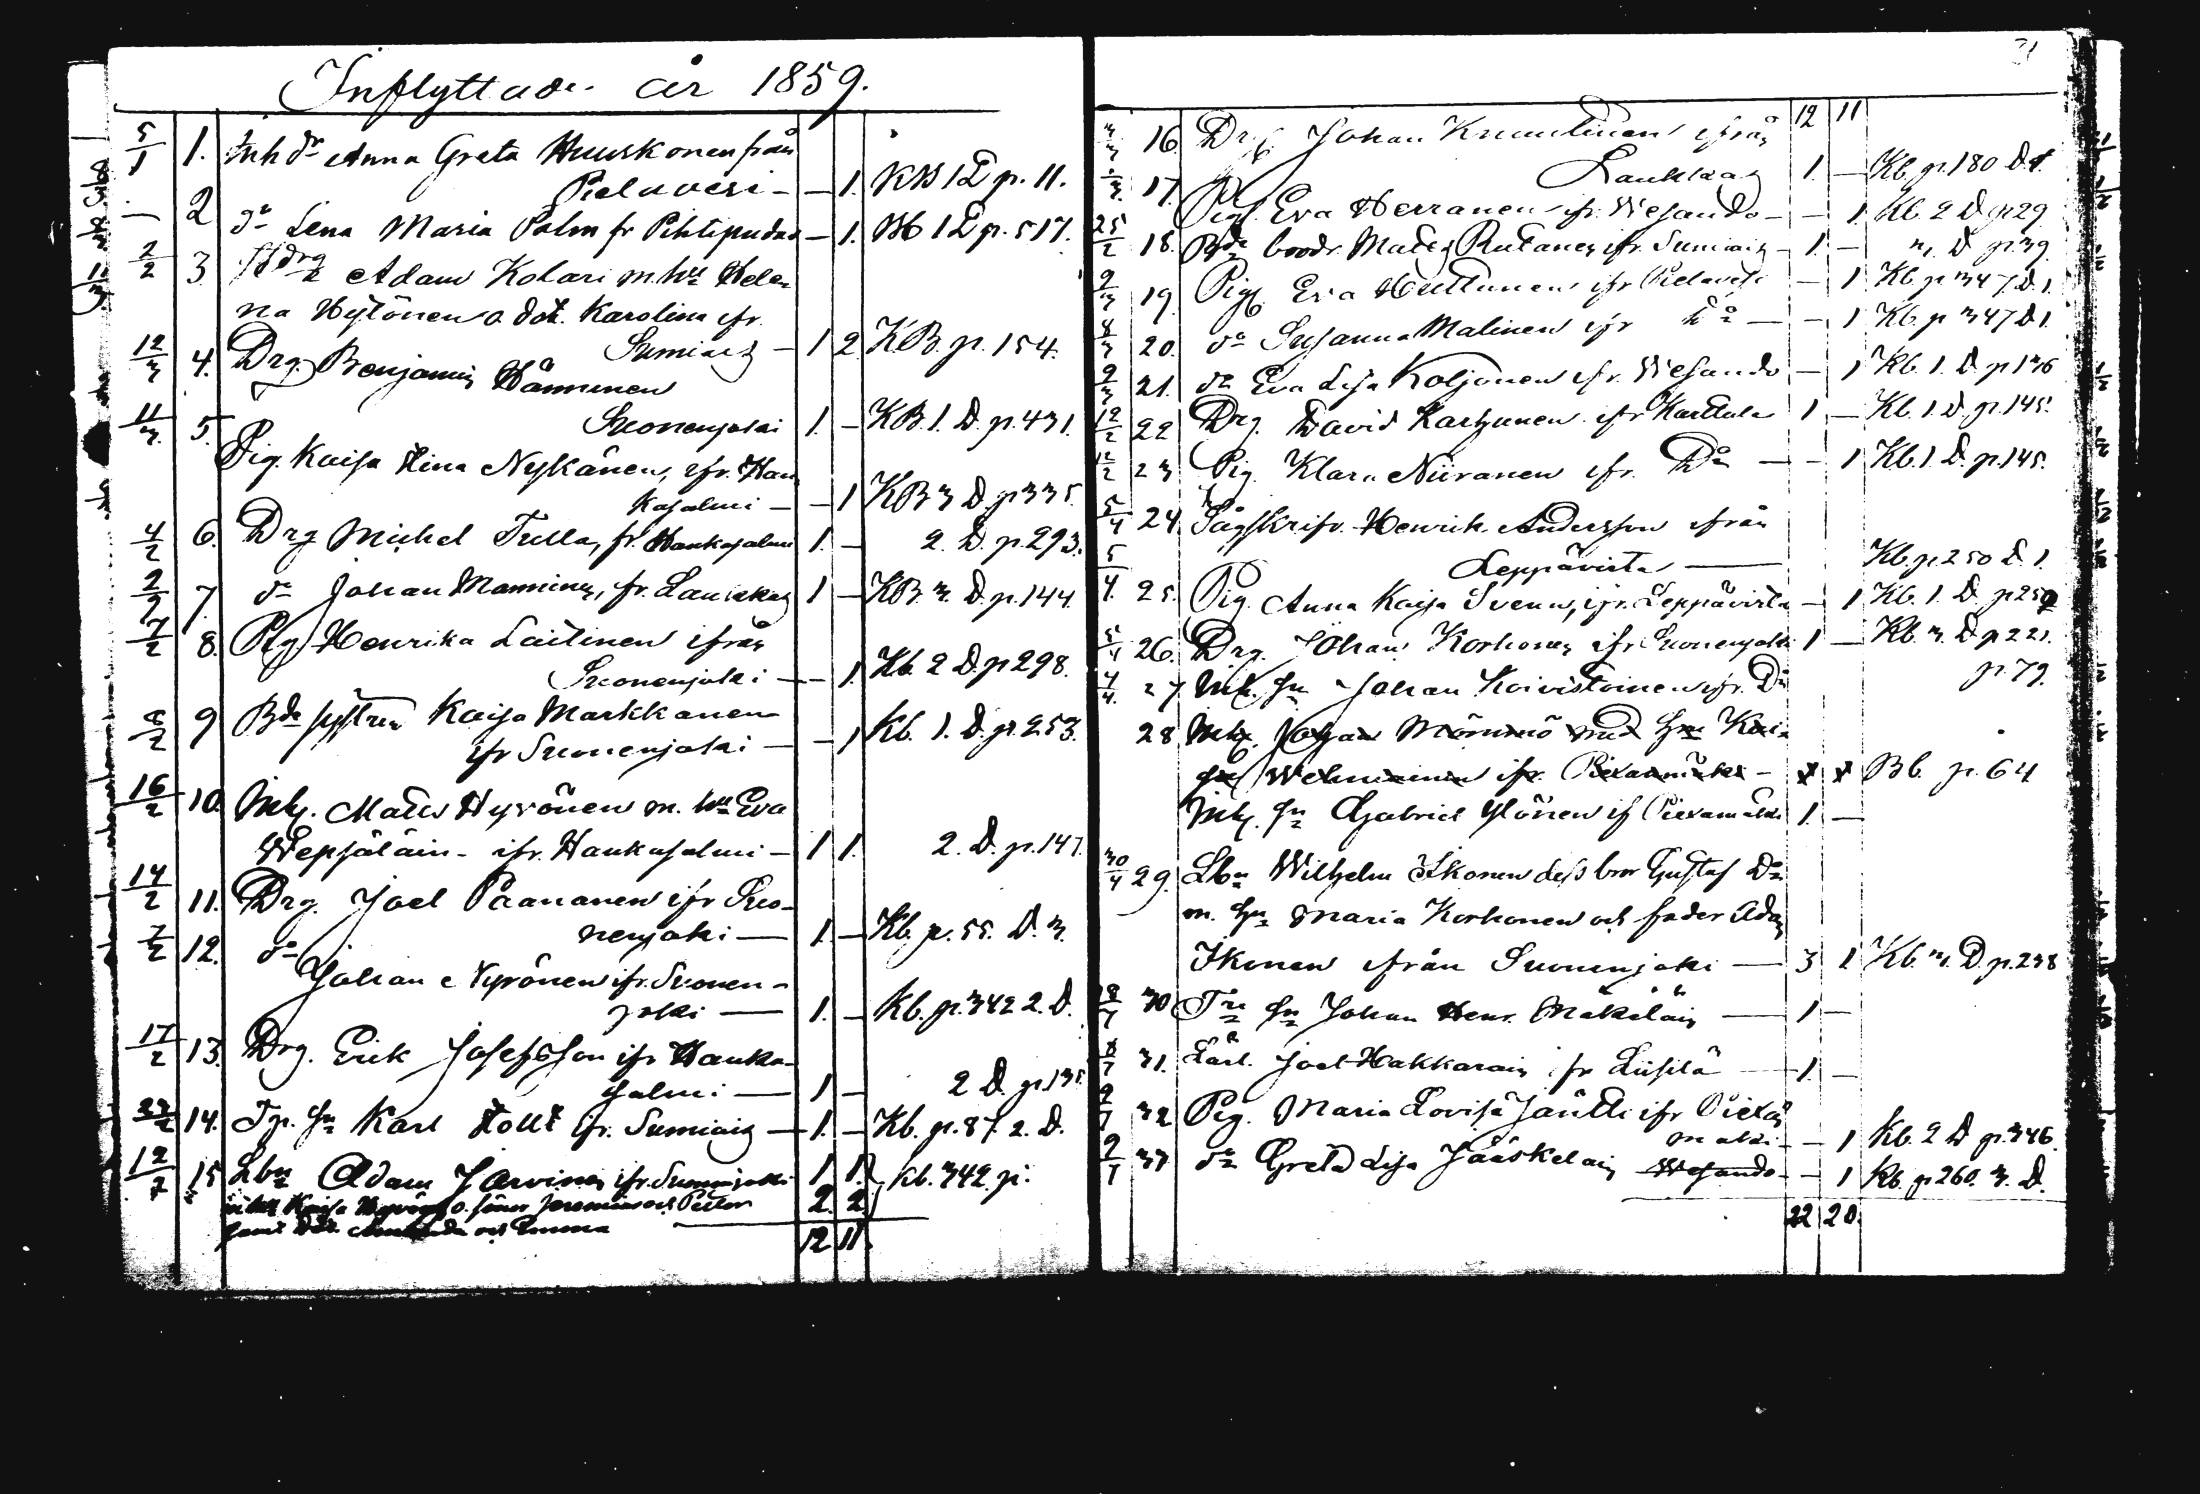 Inflyttade år 1859.
5/1 1. Inh dr Anna Greta Huuskonen från
Pielavesi - — 1. KB 1 D p. 11.
— 2 dr Lena Maria Palm fr Pihtipudas — 1. Kb 1 D p. 517.
2/2 3 Adam Kolari m. hu Hele-
na Hytönen o. dot. Karolina ifr.
Sumiais — 1 2. KB. p. 154.
12/3 4. Drg. Benjamin Hänninen
Suonenjoki 1. — KB. 1. D. p. 431.
11/3. 5. Pig. Kaisa Stina Nykänen, ifr. Han
kasalmi — — 1 KB 3 D. p 335.
4/2 6. Drg Michel Tulla, fr. Hankasalmi 1. — 2. D. p. 293.
2/2 7. do Johan Manninen, fr. Laukkas 1 — KB. 3. D. p. 144.
7/2 8. Pig Henrika Laitinen ifrån
Suonenjoki — — 1. Kb. 2 D. p 298.
8/2 9 Bde systren Kaisa Markkanen
ifr Suonenjoki — — 1 Kb. 1. D. p. 253.
16/2 10. Inh. Mats Hyvönen m. hu Eva
Wepsäläin - ifr. Hankasalmi — 1 1. 2. D. p. 147.
14/2 11. Drg. Joel Paananen ifr Suo-
nenjoki — 1. — Kb. p. 55. D. 3.
7/2 12. do
Johan Hyvönen ifr. Suonen-
joki — 1. — Kb. p. 342 2. D.
17/2 13. Drg. Erik Josefsson ifr Hanka-
salmi — 1 — 2 D. p. 135
27/2 14. Tp. sn Karl Stolt ifr. Sumiais — 1. — Kb. p. 87. 2. D.
12/7 15 Lbn Adam Jarvinen ifr. Suonenjoki 1 1. Kb. 342. p.
Kaisa Hyvönen o. söner Jeremias och Petter 2. 2.
samt Dot. och Emma
12 11.
31
12 11
3/3 16. Drg Johan Knuutinen ifrån
Laukkas 1. — Kb. p. 180 D. 1.
17. Pig. Eva Herranen ifr. Wesando — — 1. Kb. 2 D. p. 29
25/2 18. Bde brodr. Mats Rutanen ifr. Sumiais — 1. — 3. D p. 39.
9/3 19. Pig. Eva Huttunen ifr Pielavesi — 1 Kb. p 347. D. 1.
8/3 20. do Susanna Malinen ifr do — — 1 Kb. p 347 D 1.
9/3 21. do Eva Lisa Koljonen ifr. Wesando — 1 Kb. 1. D. p 136
12/2 22 Drg. David Karhunen ifr Karttula 1 — Kb. 1. D. p. 145.
12/2 23 Pig. Klara Niiranen ifr. Do — — 1 Kb. 1. D. p. 145.
5/4 24. Sågskrifv. Henrik Andersson ifrån
Leppävirta — Kb. p. 250 D. 1.
5/4. 25. Pig. Anna Kaisa Svenn, ifr. Leppävirta — 1 Kb. 1. D. p 250
5/4 26. Drg. Johan Korhonen ifr Suonenjoki 1 — Kb. 3. D. p 221.
4/4. 27 Inh. sn Johan Koivistoinen ifr. Do p. 79.
28 Inh. Johan Mömmö med hu Kai-
sa Wehmainen ifr. Pieksamäki — x x Bb. p. 64
Inh. sn Gabriel Ylönen if Pieksamäki 1. —
30/4 29. Lbn Wilhelm Ikonen dess bror Gustaf Do
m. hu Maria Korhonen och fader Adam
Ikonen ifrån Suonenjoki — 3 1 Kb. 3. D. p. 238
30 sn Johan Henr. Mäkeläin — 1 —
31. Lärl. Joel Hakkarain fr Liisilä — 1. —
32 Pig. Maria Lovisa Jäntti ifr Pieksä
maki — — 1 Kb. 2 D p. 346.
33 do Greta Lisa Jääskeläin Wesando — — 1 Kb. p 260. 3. D.
22 20.